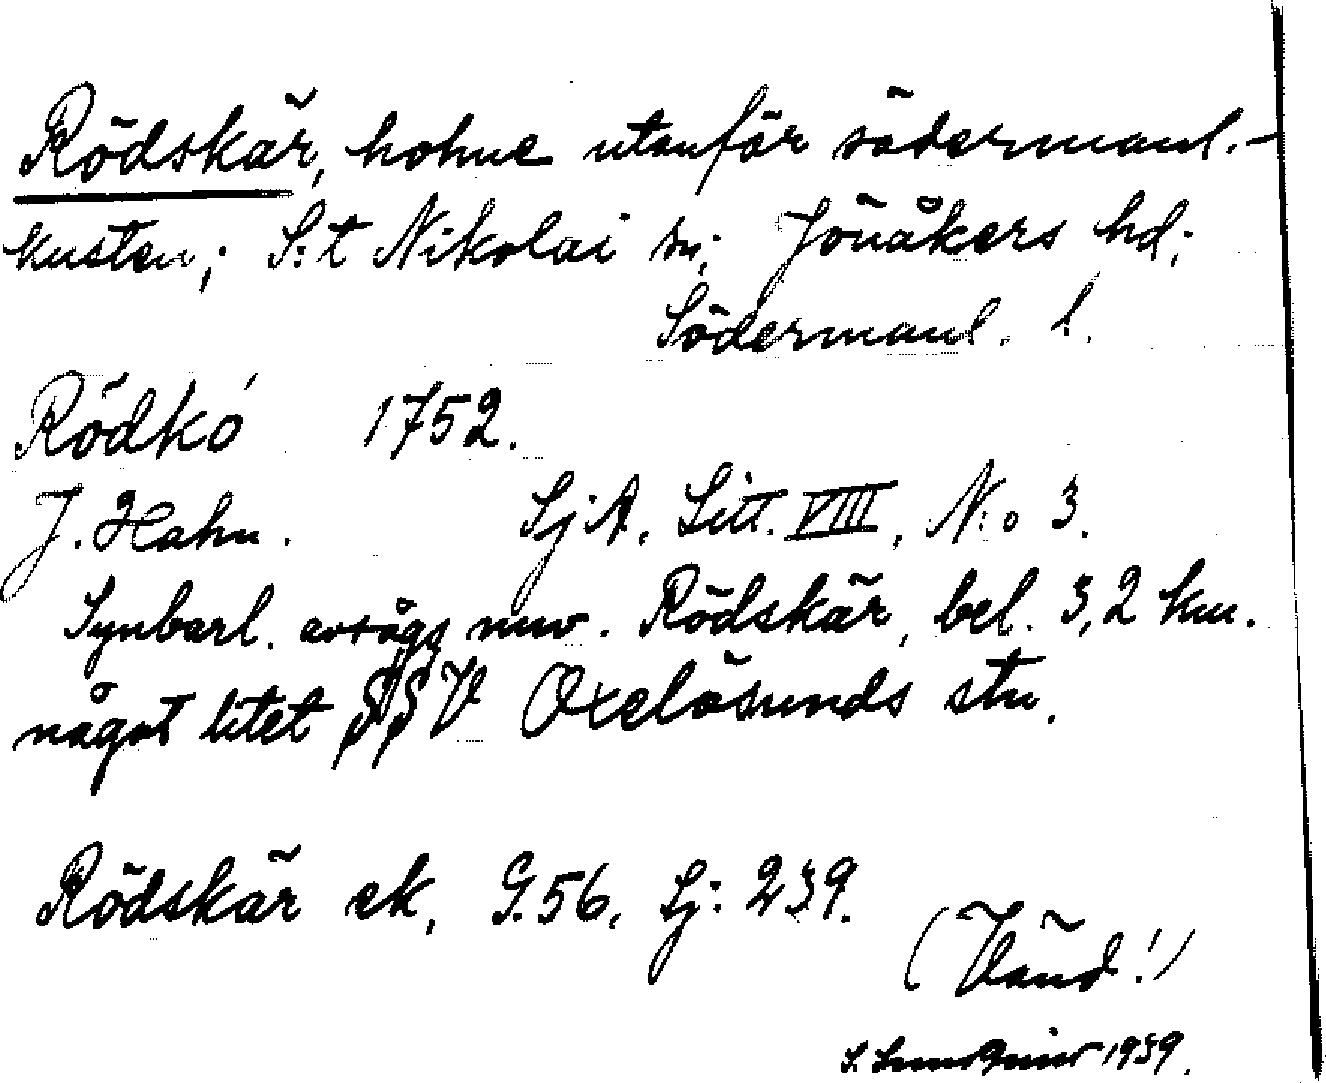 Rödskär, holme utanför södermanl.-
kusten; S:t Nikolai sn; Jönåkers hd;
Södermanl. l.
Rödkó 1752.
J. Hahn. SjA. Litt. VIII, N:o 3.
Synbarl. avsågs nuv. Rödskär, bel. 3,2 km.
något litet SSV Oxelösunds stn.
Rödskär ek. G.56. Sj: 239.
(Vänd!)
1939.